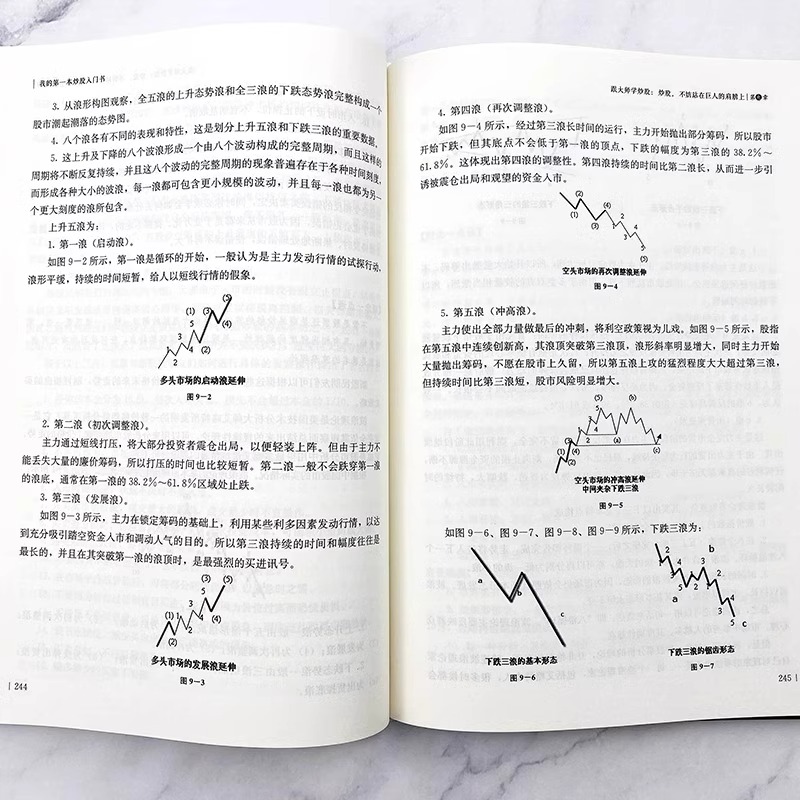 我的第一本炒股入门书
3. 从浪形构图观察，全五浪的上升态势浪和全三浪的下跌态势浪完整构成一个
股市潮起潮落的态势图。
4. 八个浪各有不同的表现和特性，这是划分上升五浪和下跌三浪的重要数据。
5. 这上升及下降的八个波浪形成一个由八个波动构成的完整周期，而且这样的
周期将不断反复持续，并且这八个波动的完整周期的现象普遍存在于各种时间刻度，
而形成各种大小的波浪，每一浪都可包含更小规模的波动，并且每一浪也都为另一
个更大刻度的浪所包含。
上升五浪为：
1. 第一浪（启动浪）。
如图 9－2所示，第一浪是循环的开始，一般认为是主力发动行情的试探行动，
浪形平缓，持续的时间短暂，给人以短线行情的假象。
(1) (3) (5)
(2) (4)
1 2 3 4 5
多头市场的启动浪延伸
图 9－2
2. 第二浪（初次调整浪）。
主力通过短线打压，将大部分投资者震仓出局，以便轻装上阵。但由于主力不
能丢失大量的廉价筹码，所以打压的时间也比较短暂。第二浪一般不会跌穿第一浪
的浪底，通常在第一浪的 38.2%～61.8%区域处止跌。
3. 第三浪（发展浪）。
如图 9－3 所示，主力在锁定筹码的基础上，利用某些利多因素发动行情，以达
到充分吸引踏空资金入市和调动人气的目的。所以第三浪持续的时间和幅度往往是
最长的，并且在其突破第一浪的浪顶时，是最强烈的买进讯号。
(3) (5)
5
3
(1) 1 4 (4)
2
(2)
多头市场的发展浪延伸
图 9－3
244
跟大师学炒股：炒股，不妨站在巨人的肩膀上 | 第9章
4. 第四浪（再次调整浪）。
如图 9－4所示，经过第三浪长时间的运行，主力开始抛出部分筹码，所以股市
开始下跌，但其底点不会低于第一浪的顶点，下跌的幅度为第三浪的 38.2%～
61.8%。这体现出第四浪的调整性。第四浪持续的时间比第二浪长，从而进一步引
诱被震仓出局和观望的资金入市。
(2)
(4)
(1) 2
(3) 1 4
3
5
(5)
空头市场的再次调整浪延伸
图 9－4
5. 第五浪（冲高浪）。
主力使出全部力量做最后的冲刺，将利空政策视为儿戏。如图 9－5所示，股指
在第五浪中连续创新高，其浪顶突破第三浪顶，浪形斜率明显增大，同时主力开始
大量抛出筹码，不愿在股市上久留，所以第五浪上攻的猛烈程度大大超过第三浪，
但持续时间比第三浪短，股市风险明显增大。
(5)
5 (b)
3
4
(3) 1
2 (a) (c)
(1) (4)
(2)
空头市场的冲高浪延伸
中间夹杂下跌三浪
图 9－5
如图 9－6、图 9－7、图 9－8、图 9－9所示，下跌三浪为：
a b c
下跌三浪的基本形态
图 9－6
2 b
1 4 2
3 1 4
5 3
a 5 c
下跌三浪的锯齿形态
图 9－7
245